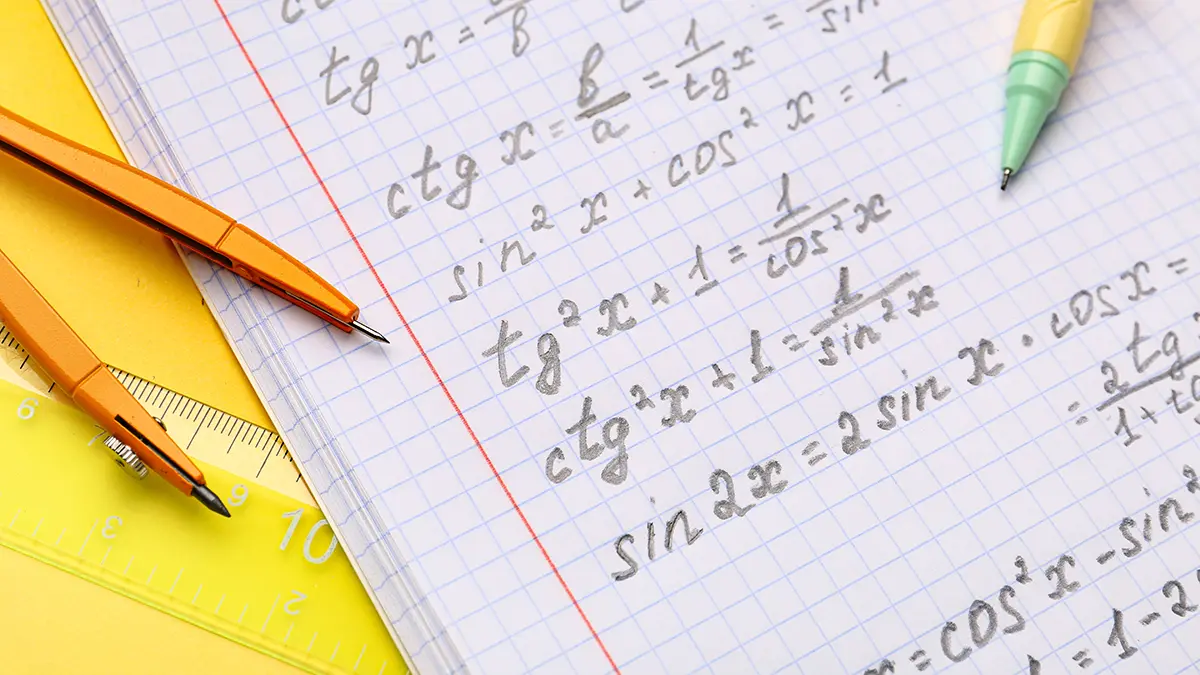 tg x = a/b
ctg x = b/a = 1/tg x = /sin
sin² x + cos² x = 1
tg² x + 1 = 1/cos² x
ctg² x + 1 = 1/sin² x
sin 2x = 2 sin x · cos x =
= 2 tg/1 + tg
= cos² x - sin²
= 1 - 2
6 7 9 10
3 2